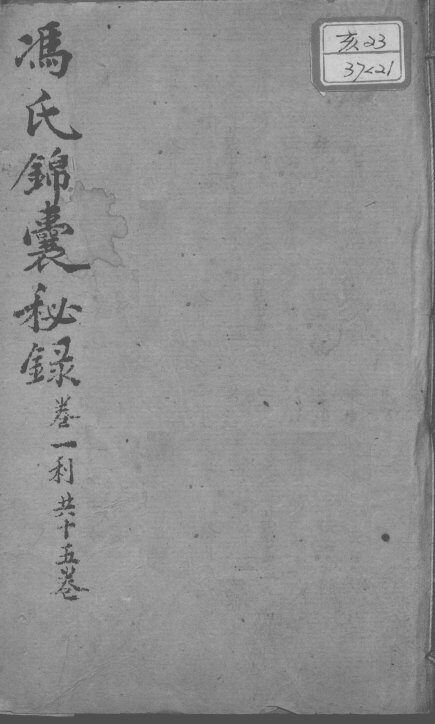 馮氏錦囊秘録
卷一利共十五卷
亥23
37<21